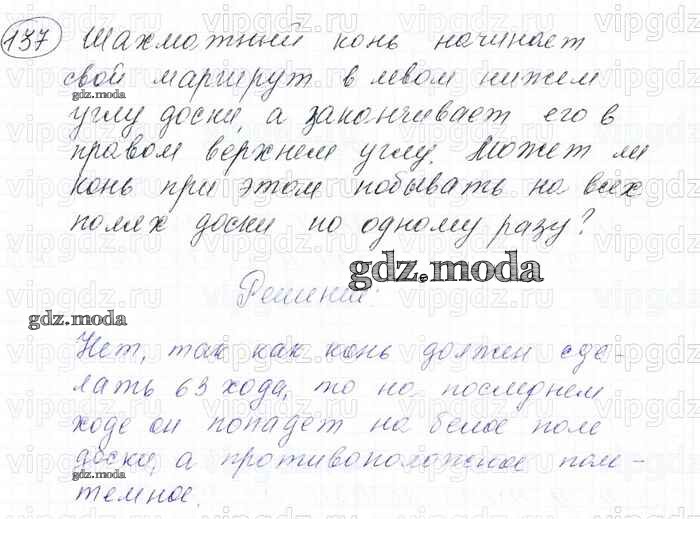 137 Шахматный конь начинает
свой маршрут в левом нижем
gdz.moda
углу доски, а заканчивает его в
правом верхнем углу. Может ли
конь при этом побывать на всех
полях доски по одному разу?
gdz.moda
Решение:
gdz.moda
Нет, так как конь должен сде-
лать 63 хода, то на последнем
ходе он попадет на белое поле
доски, а противоположное поле -
gdz.moda
темное.